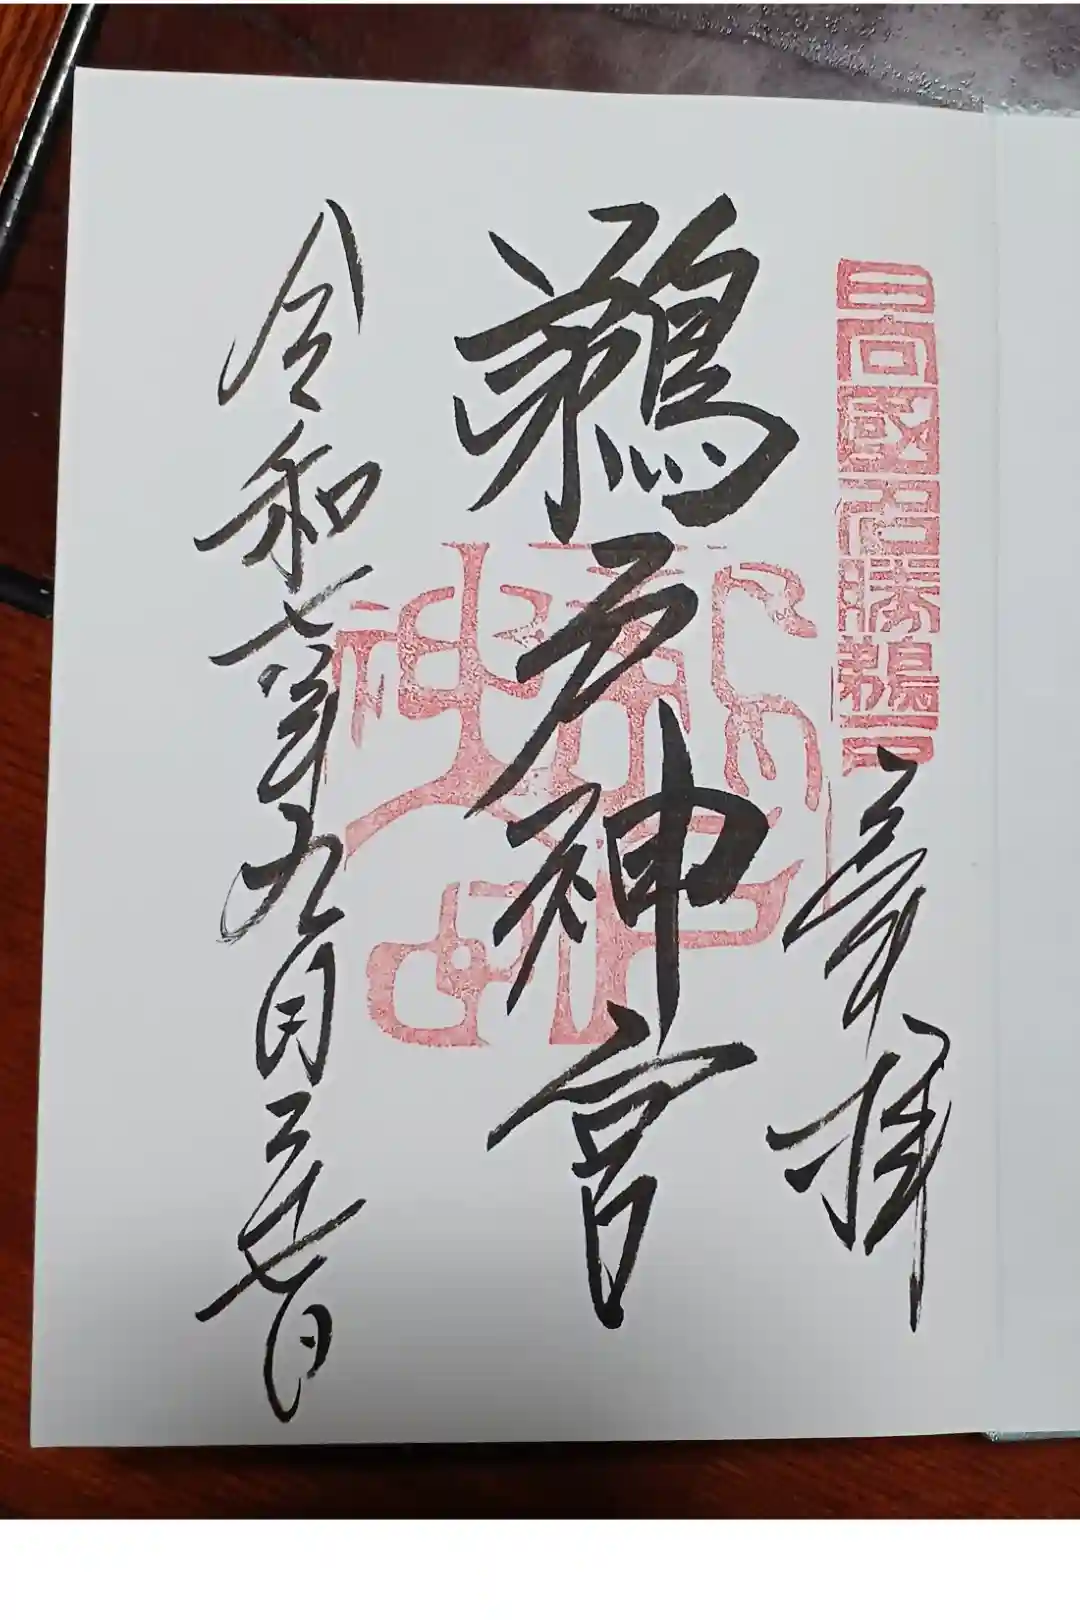 日向國名勝鵜戸
奉拝
鵜戸神宮
令和七年九月二十七日